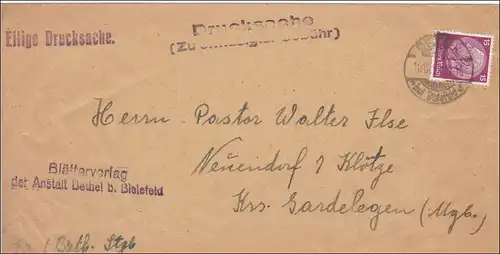 Eilige Drucksache.
Drucksache
(Zu ermäßigter Gebühr)
15
15
Herrn Pastor Walter Ilse
Neuendorf b Klötze
Krs. Gardelegen (Mgb.)
Blätterverlag
der Anstalt Bethel b. Bielefeld
/ Beth. Stgb